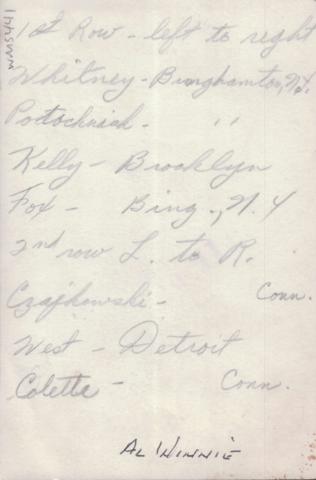 1st Row - left to right
Whitney - Binghamton, N.Y.
Potochniak - " 
Kelly - Brooklyn
Fox - Bing., N.Y
2nd row L. to R.
Czajkowski - Conn.
West - Detroit
Colette - Conn.
AL WINNIE